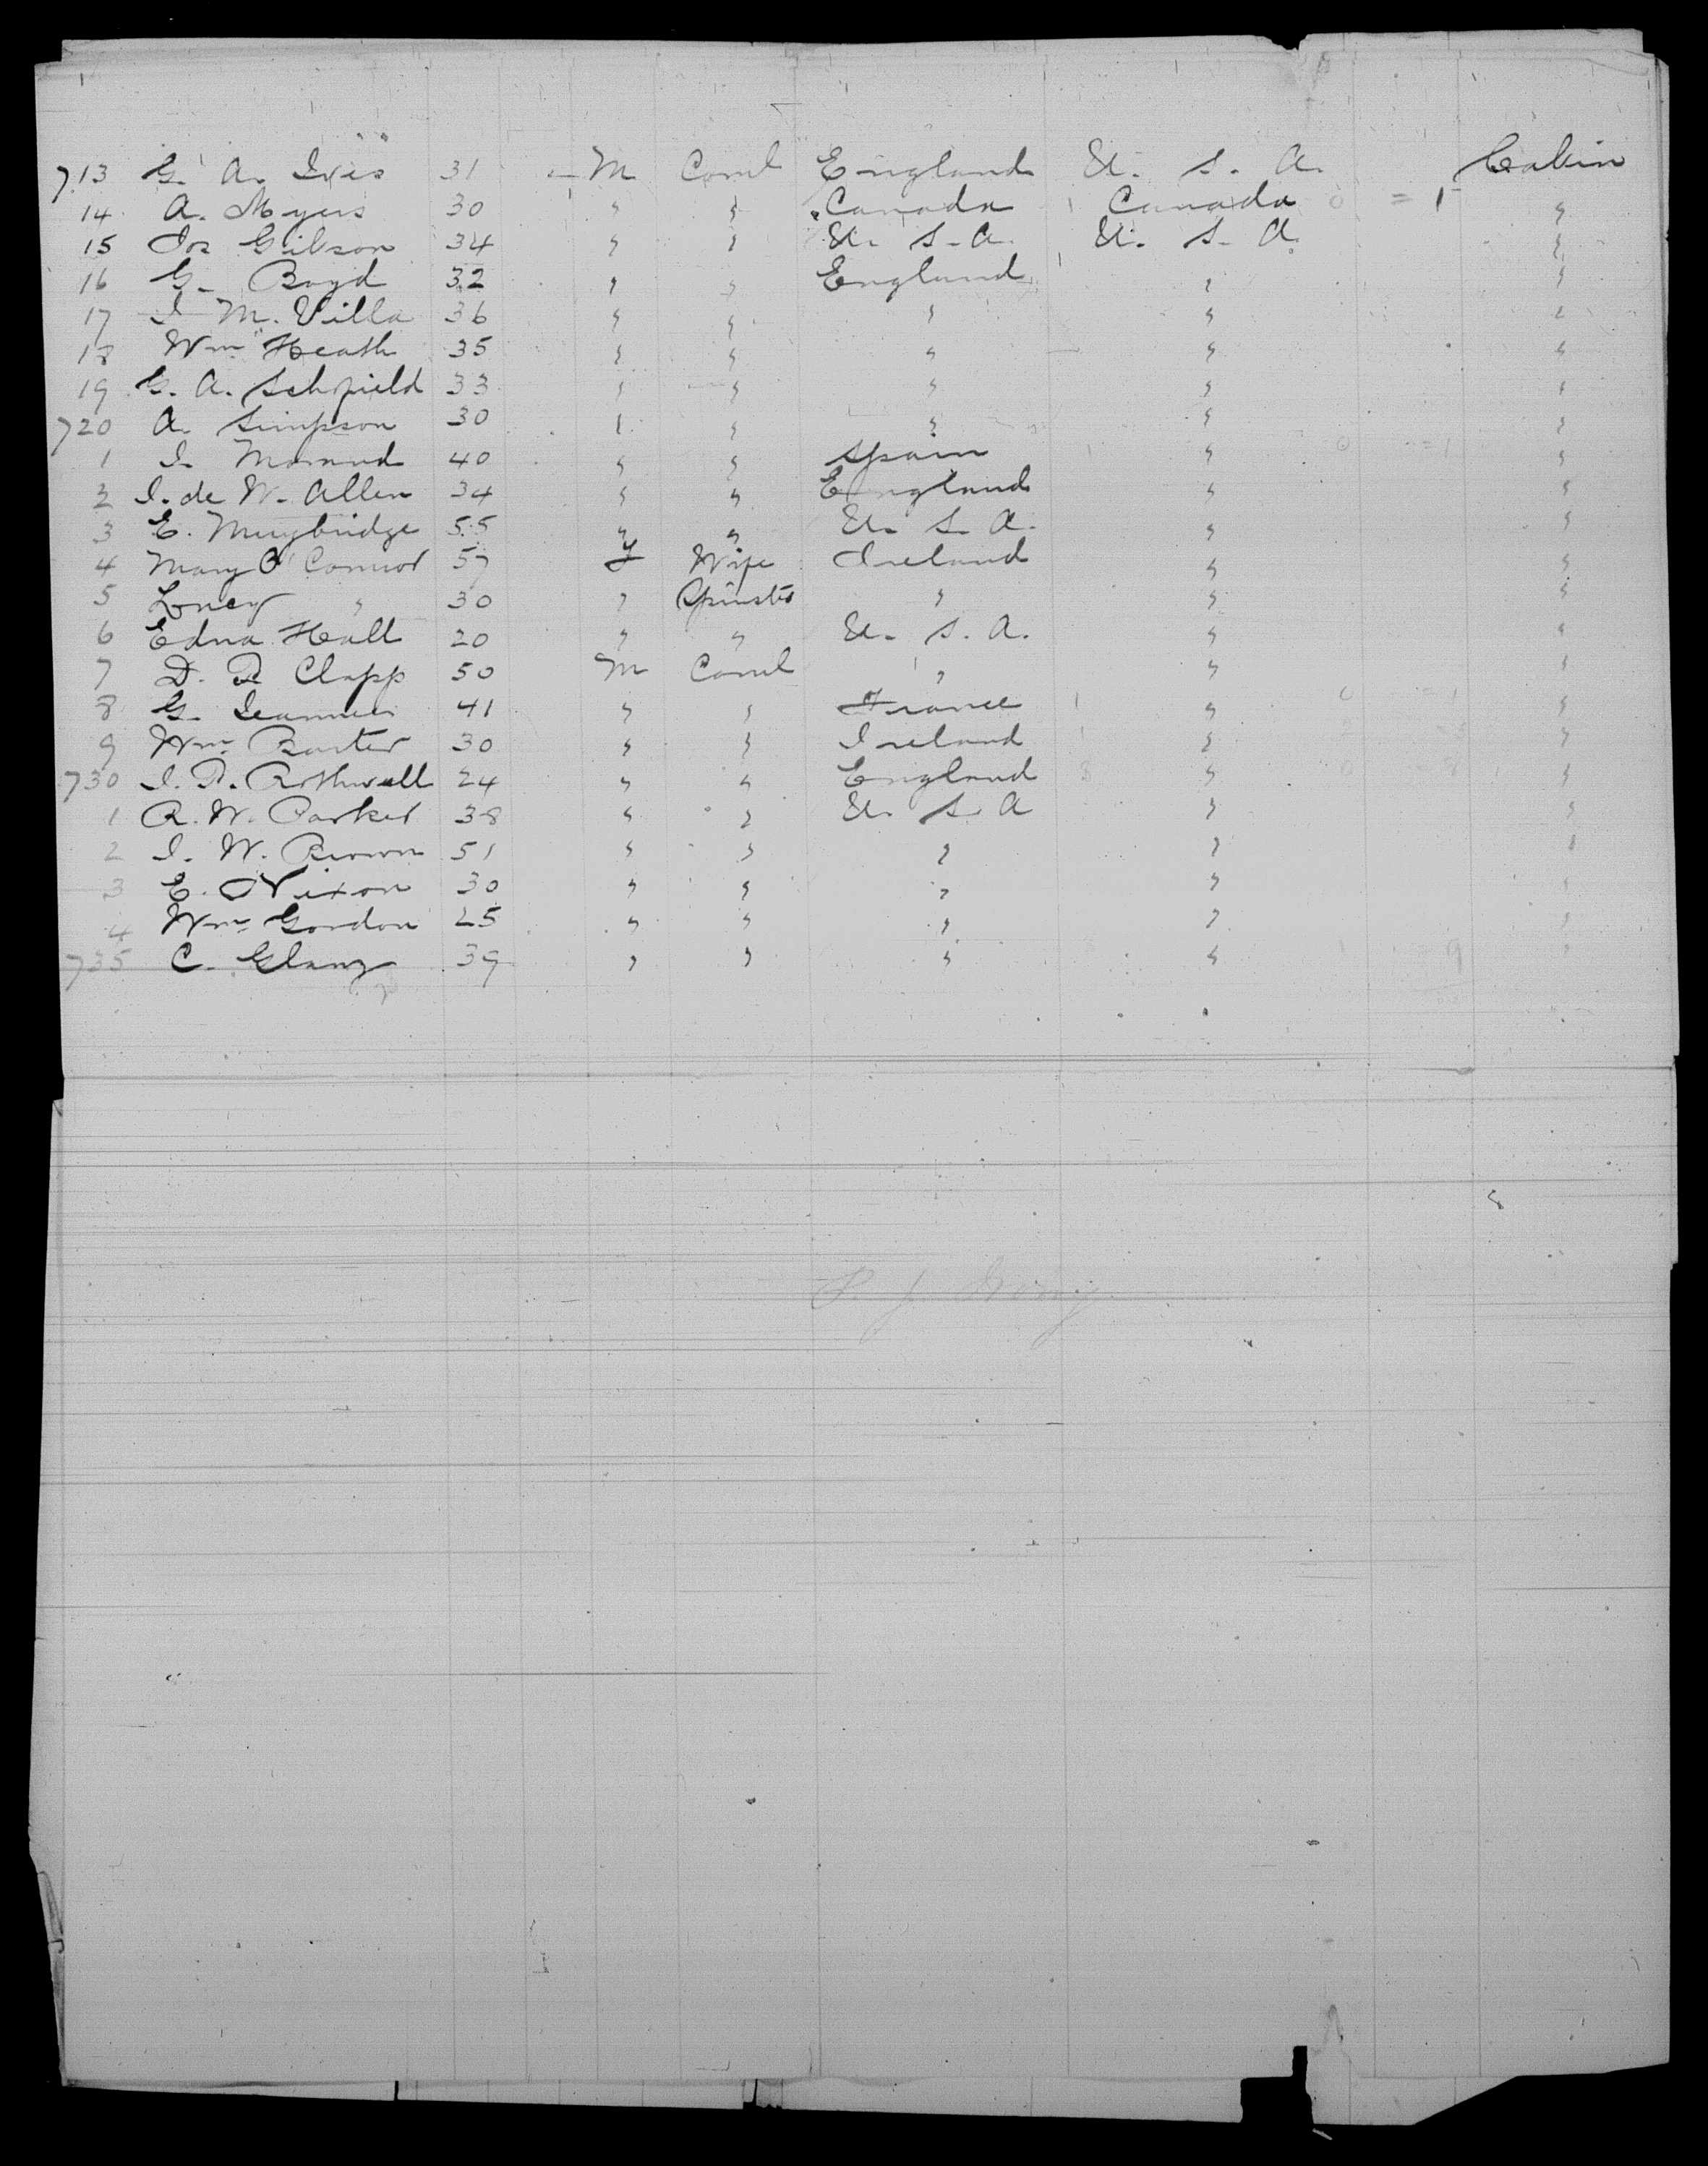 713 G. A. Ives 31 M Coml England U. S. A. Cabin
14 A. Myers 30 " " Canada 1 Canada 0 = 1 "
15 Jos Gibson 34 " " U. S. A. U. S. A. "
16 G. Boyd 32 " " England " "
17 J M. Villa 36 " " " " "
18 Wm Heath 35 " " " " "
19 G. A. Schofield 33 " " " " "
720 A. Simpson 30 " " " " "
1 J. 40 " " Spain 1 " 0 = 1 "
2 J. de W. Allen 34 " " England " "
3 E. Muybridge 55 " " U. S. A. " "
4 Mary O'Connor 57 F Wife Ireland " "
5 " 30 " Spinster " " "
6 Edna Hall 20 " " U. S. A. " "
7 D. P. Clapp 50 M Coml " " "
8 G. 41 " " France 1 " "
9 Wm 30 " " Ireland 1 " "
730 J. P. Rothwell 24 " " England " "
1 R. W. Parker 38 " " U. S. A " "
2 J. W. Brown 51 " " " " "
3 E. Nixon 30 " " " " "
4 Wm Gordon 25 " " " " "
735 C. Glanz 39 " " " " 9 "